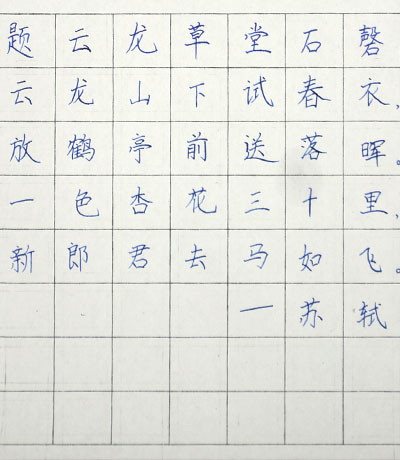 题云龙草堂石磬
云龙山下试春衣,
放鹤亭前送落晖。
一色杏花三十里,
新郎君去马如飞。
—苏轼